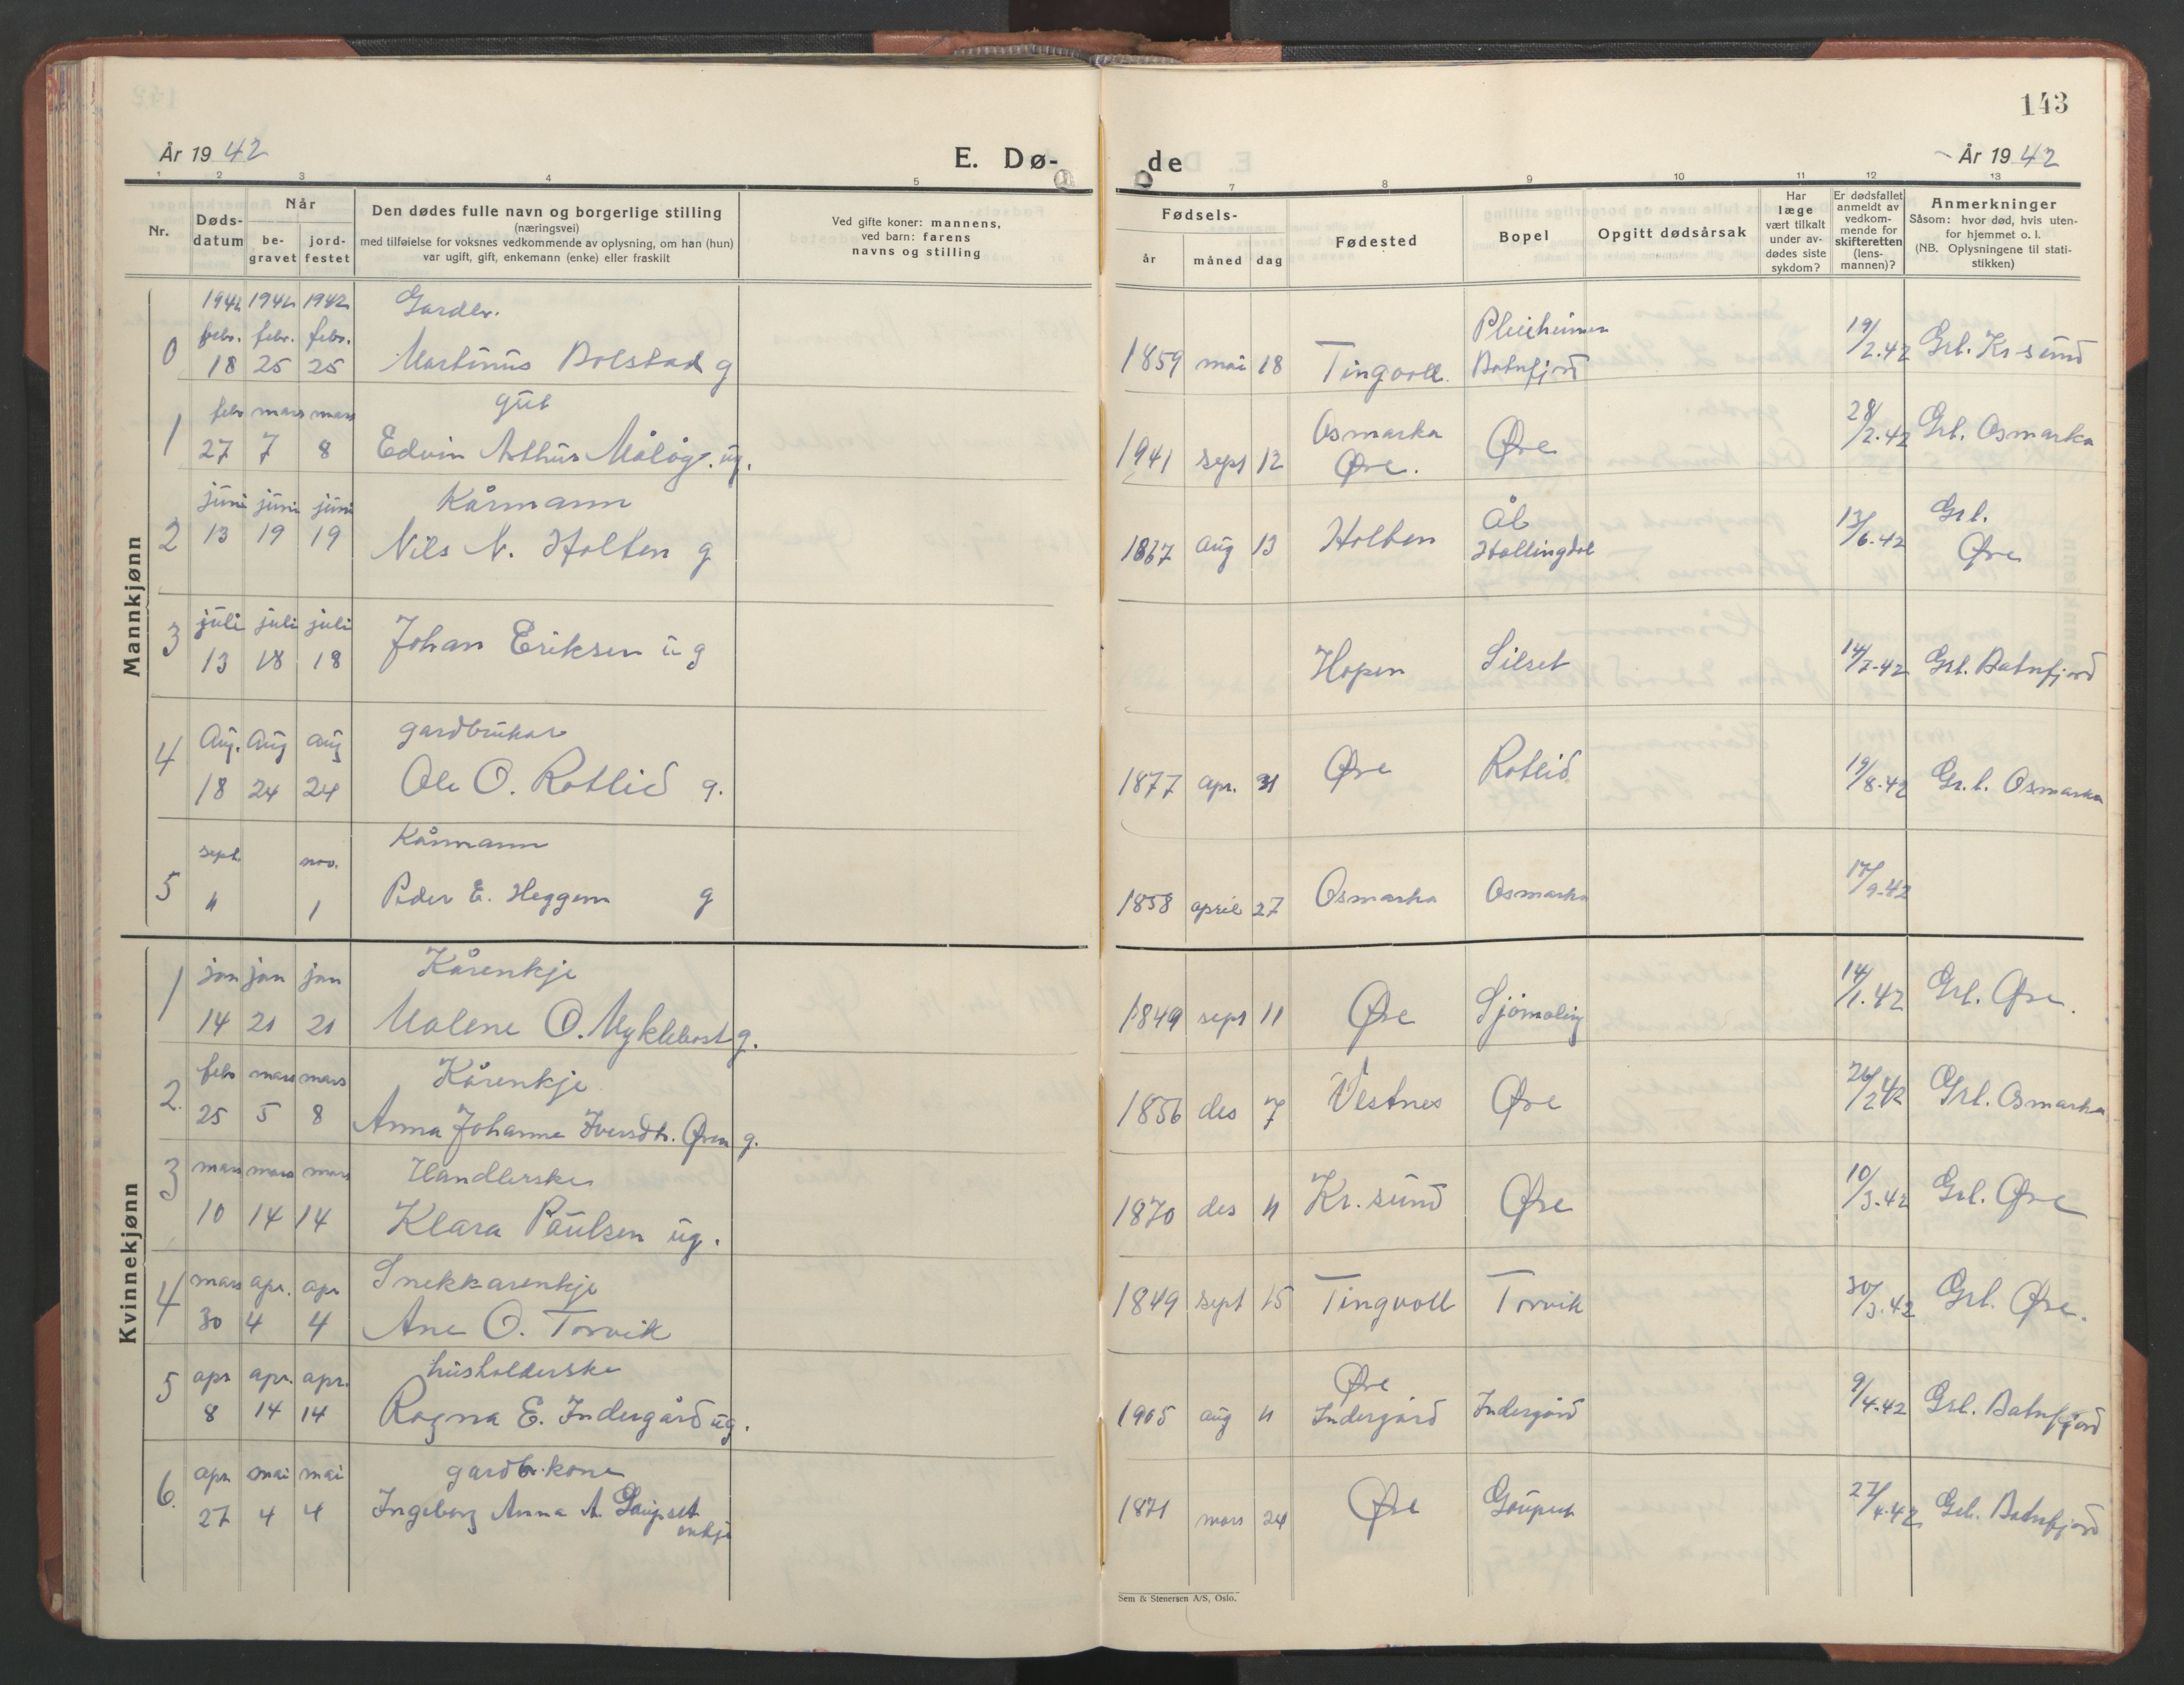 143
År 1942
E. Dø-
de
År 1942
1 2 3 4 5 7 8 9 10 11 12 13
Nr.
Døds-
datum
Når
be-
gravet
jord-
festet
Den dødes fulle navn og borgerlige stilling
(næringsvei)
med tilføielse for voksnes vedkommende av oplysning, om han (hun)
var ugift, gift, enkemann (enke) eller fraskilt
Ved gifte koner: mannens,
ved barn: farens
navns og stilling
Fødsels-
år
måned
dag
Fødested
Bopel
Opgitt dødsårsak
Har
læge
vært tilkalt
under av-
dødes siste
sykdom?
Er dødsfallet
anmeldt av
vedkom-
mende for
skifteretten
(lens-
mannen)?
Anmerkninger
Såsom: hvor død, hvis uten-
for hjemmet o. l.
(NB. Oplysningene til stati-
stikken)
Mannkjønn
1942 1942 1942 Gardbr.
0 febr. febr. febr.
18 25 25 Martinus Bolstad g
1859 mai 18 Tingvoll Batnfjord 19/2.42 Grl. Kr-sund
febr mars mars gut
1 27 7 8 Edvin Arthur Måløy. ug.
Osmarka
1941 sept 12 Øre. Øre 28/2.42 Grl. Osmarka
juni juni juni Kårmann
2 13 19 19 Nils N. Holten g
Ål Grl.
1867 aug 13 Holten Hallingdal 13/6.42 Øre
juli juli juli
3 13 18 18 Johan Eriksen ug
Hopen Silset 14/7-42 Grl. Batnfjord
4 Aug. Aug aug gardbrukar
18 24 24 Ole O. Rotlid g.
1877 apr. Øre Rotlid 19/8.42 Gr.l. Osmarka
sept. nov. Kårmann
5 11 1 Peder E. Heggem g
1858 april 27 Osmarka Osmarka 17/9-42
Kvinnekjønn
1 jan jan jan Kårenkje
14 21 21 Malene O. Myklebost g.
1849 sept 11 Øre Sjømoling 14/1.42 Grl. Øre.
2. febr mars mars Kårenkje
25 5 8 Anna Johanne Iversdtr. Øren g.
1856 des 7 Vestnes Øre 26/2 42 Grl. Osmarka
3 mars mars mars Handlerske
10 14 14 Klara Paulsen ug.
1870 des 11 Kr. sund Øre 10/3.42 Grl. Øre
4 mars apr. apr Snekkarenkje
30 4 4 Ane O. Torvik
1849 sept 15 Tingvoll Torvik 30/3.42 Grl. Øre.
5 apr apr. apr. husholderske
8 14 14 Ragna E. Indergård ug.
Øre
1905 aug 11 Indergård Indergård 9/4.42 Grl. Batnfjord
6. apr mai mai gardbr.kone
27 4 4 Ingeborg Anna A. Gaupset
enkje
1871 mars 24 Øre Gaupset 27/4.42 Grl. Batnfjord
Sem & Stenersen A/S, Oslo.